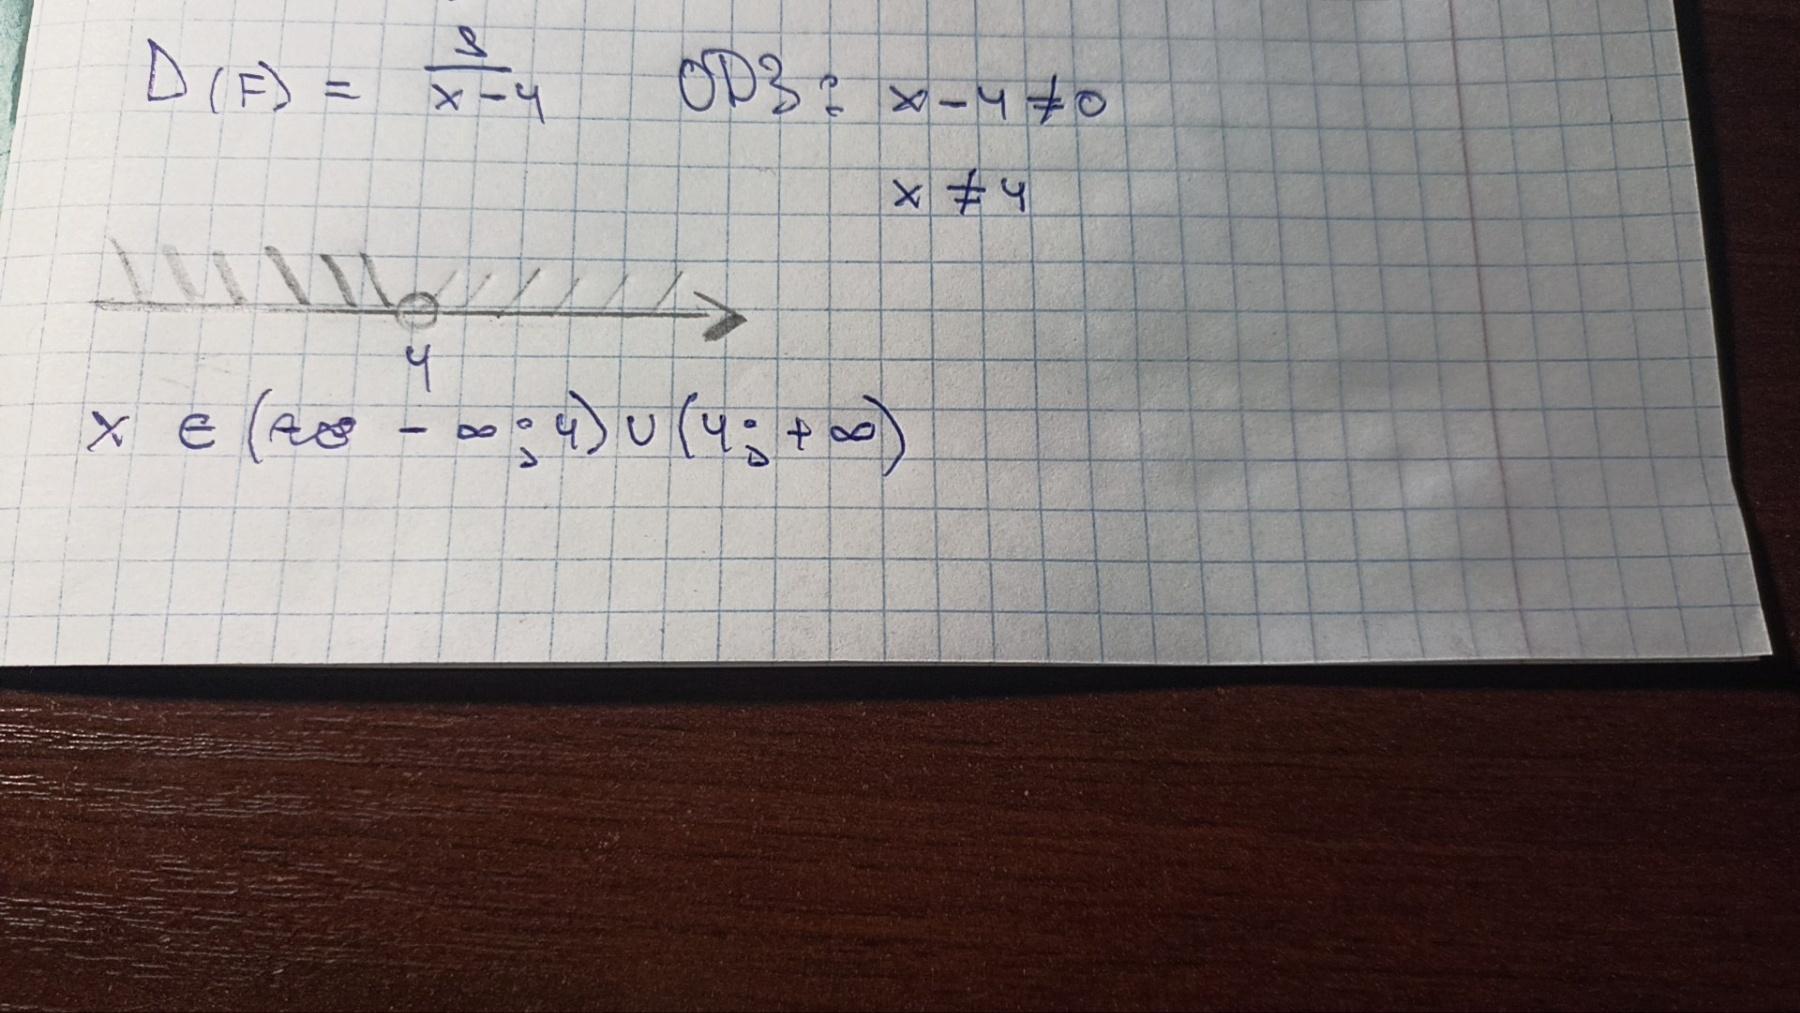 D(F) = 9/(x-4) ОДЗ: x-4≠0
x ≠ 4
4
x ∈ (- ∞; 4) ∪ (4; + ∞)